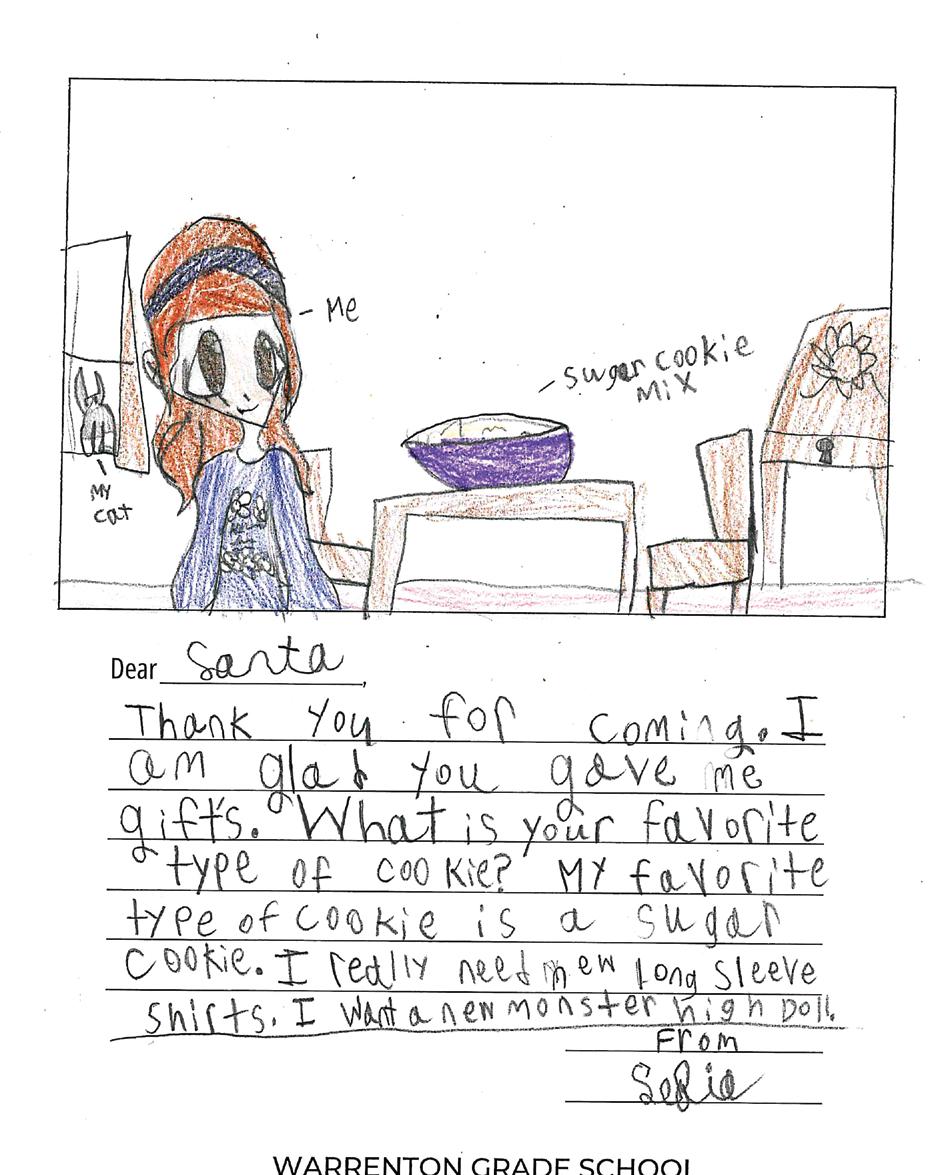 - Me
sugar cookie
Mix
MY
cat
Dear Santa,
Thank you for coming. I
am glad you gave me
gifts. What is your favorite
type of cookie? MY favorite
type of cookie is a sugar
cookie. I really need new long sleeve
shirts. I want a new monster high Doll.
From
Sofia
WARRENTON GRADE SCHOOL